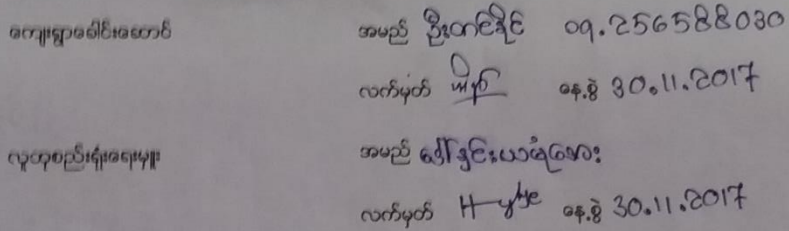 ကျေးရွာခေါင်းဆောင် အမည် ဦးတင်ခိုင် 09.256588030
လက်မှတ် ရက်စွဲ 30.11.2017
လူထုစည်းရုံးရေးမှူး အမည် ဒေါ်ခင်းယမုံအေး
လက်မှတ် နေ့စွဲ 30.11.2017